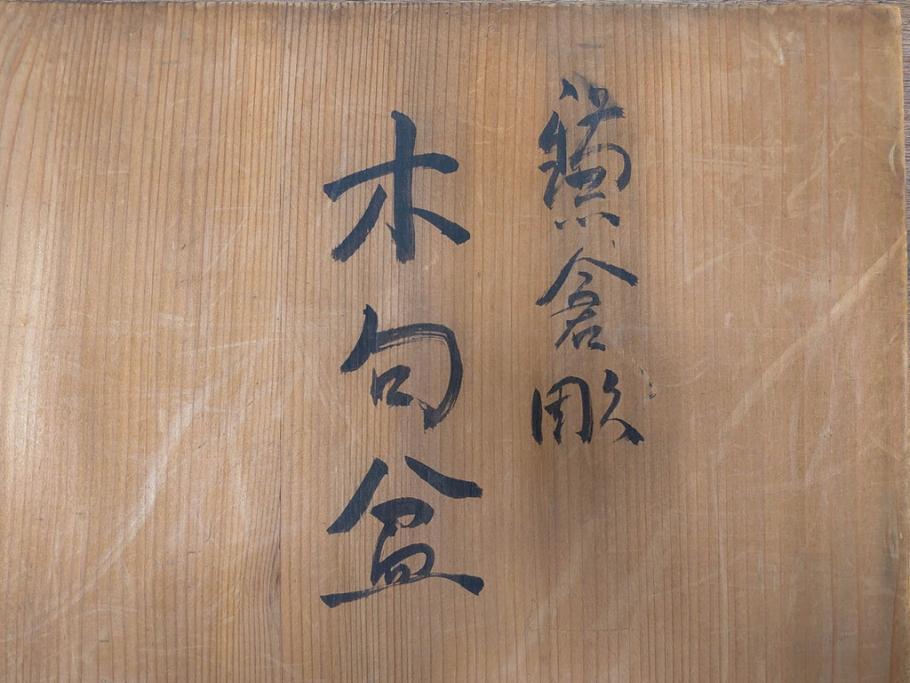 鎌倉彫
木句盆